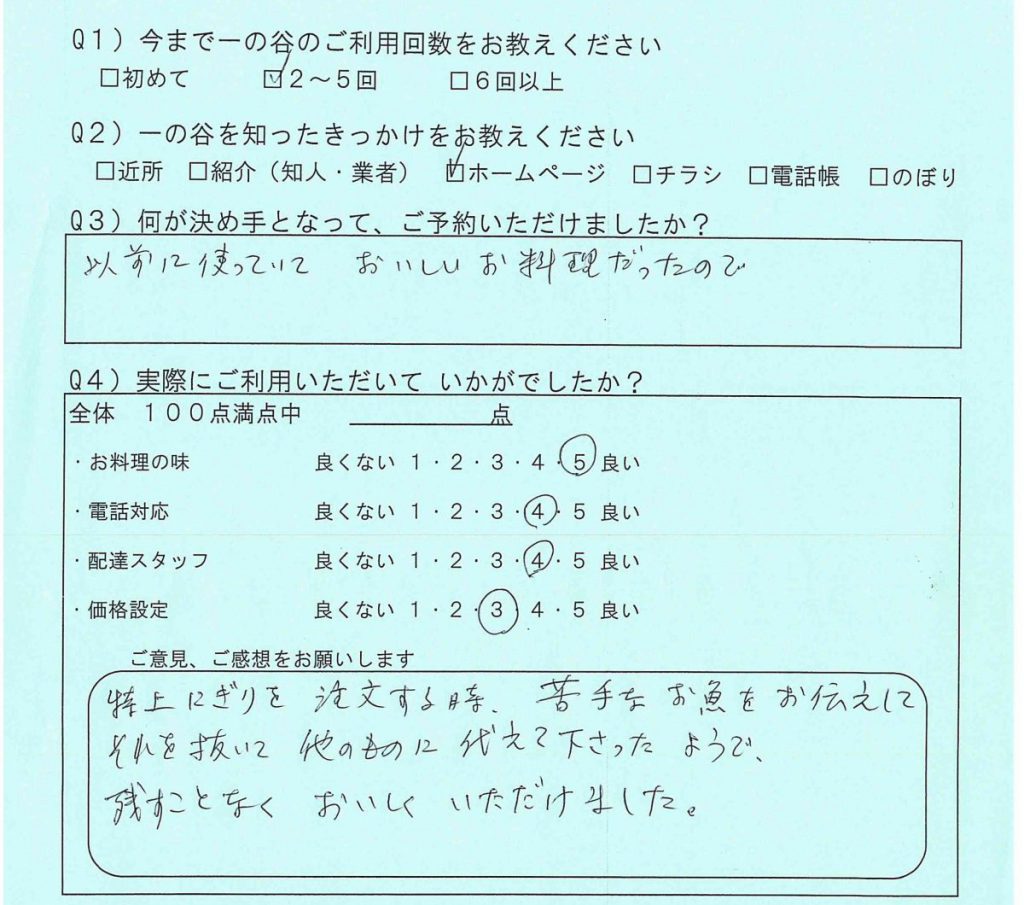 Q1）今まで一の谷のご利用回数をお教えください
□初めて ☑2～5回 □6回以上
Q2）一の谷を知ったきっかけをお教えください
□近所 □紹介（知人・業者） ☑ホームページ □チラシ □電話帳 □のぼり
Q3）何が決め手となって、ご予約いただけましたか？
以前に使っていて おいしいお料理だったので
Q4）実際にご利用いただいて いかがでしたか？
全体 100点満点中 ＿＿＿＿＿＿点
・お料理の味 良くない 1・2・3・4・5 良い
・電話対応 良くない 1・2・3・4・5 良い
・配達スタッフ 良くない 1・2・3・4・5 良い
・価格設定 良くない 1・2・3 4・5 良い
ご意見、ご感想をお願いします
特上にぎりを 注文する時、苦手な お魚を お伝えして
それを抜いて 他のものに 代えて下さった ようで、
残すことなく おいしく いただけました。